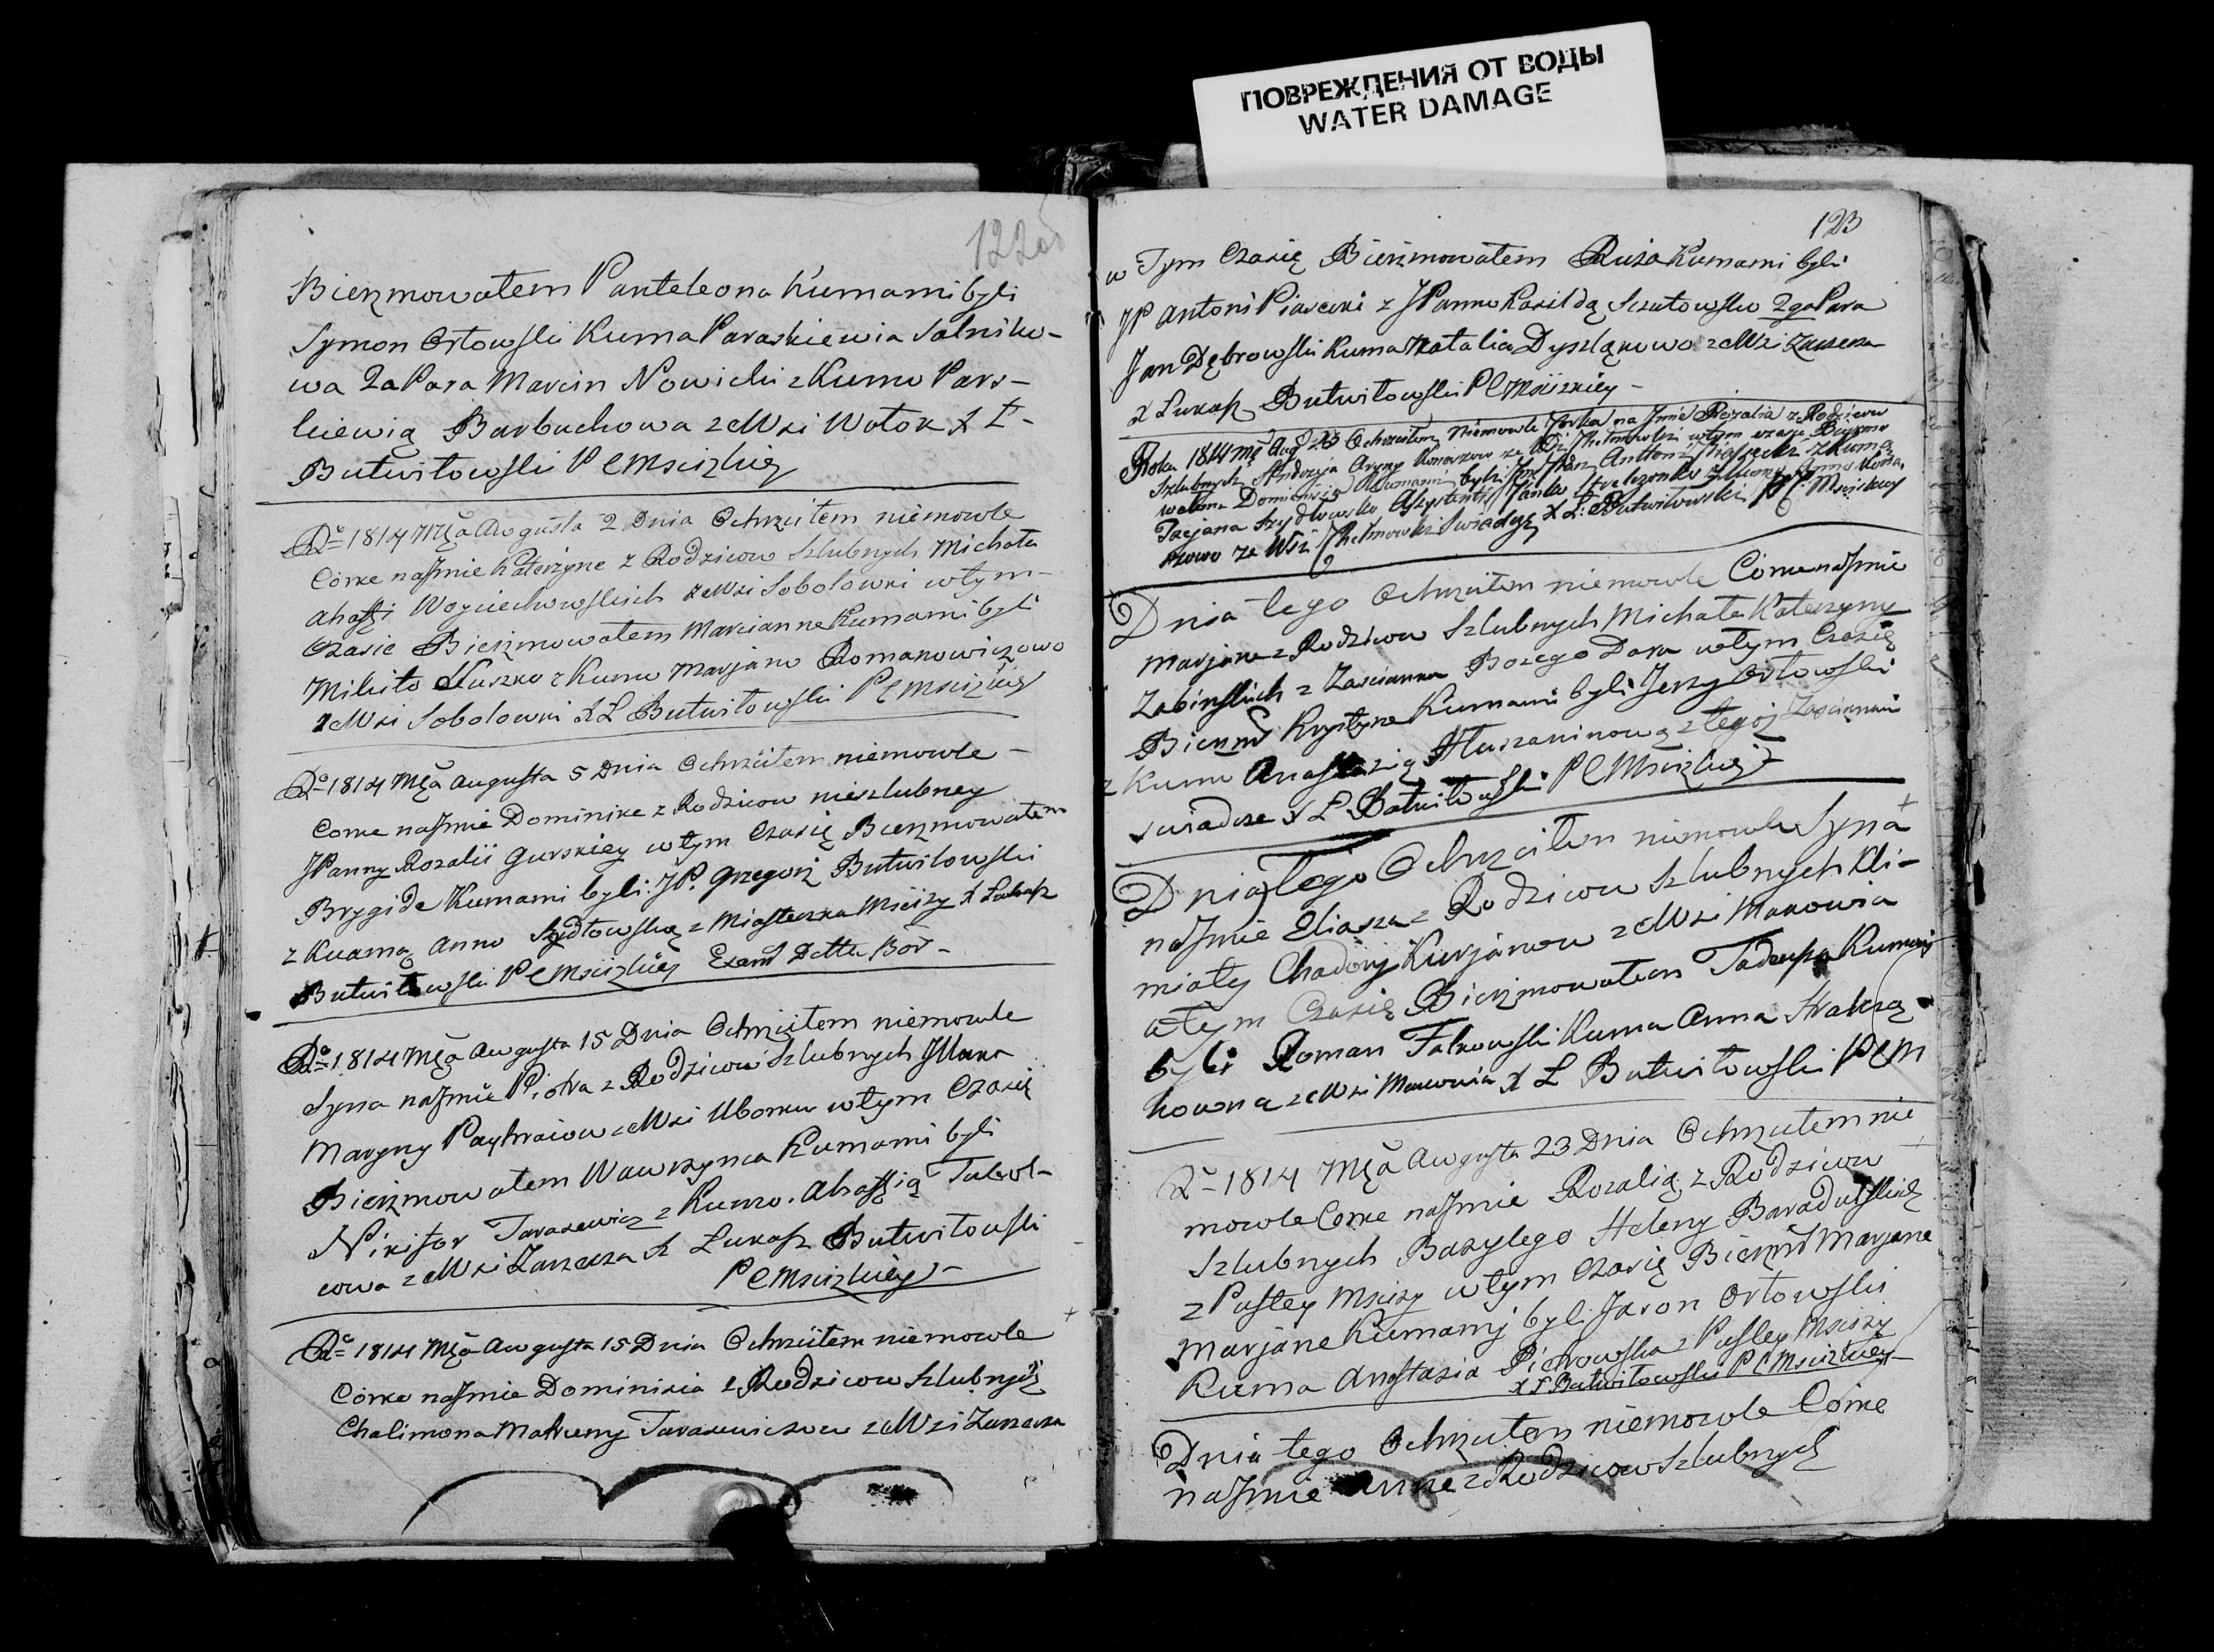 ПОВРЕЖДЕНИЯ ОТ ВОДЫ
WATER DAMAGE
122об
Bierzmowałem Panteleona Kumami byli
Symon Orłowski Kuma Paraskiewia Solniko-
wa 2a Para Marcin Nowicki z Kumo Pars-
kiewią Barbuchowa z Wsi Wołok X Ł-
Butwiłowski P C Mscizkiej
Rº 1814 Mca Augusta 2 Dnia Ochrzciłem niemowle
Corke na Jmie Katerzyne z Rodzicow Szlubnych Michała
Ahafii Woyciechowskich z Wsi Sobolowki w tym-
Czasie Bierzmowałem Marciannę Kumami byli
Mikito Kuszko z Kumo Marjano Romanowiczowo
z Wsi Sobolowki X L Butwiłowski P C Mscizkiej
Rº 1814 Mca Augusta 5 Dnia Ochrzciłem niemowle -
Corke na Jmie Dominike z Rodzicow nieszlubney
JPanny Rozalii Gurskiey w tym Czasię Bierzmowałem
Brygide Kumami byli JP. Grzegorz Butwiłowski
z Kuamą Anno Szydłowską z Miasteczka Mscizy X Łukasz
Butwiłowski P C Mscizkiej
Rº 1814 Mca Augusta 15 Dnia Ochrzciłem niemowle
Syna na Jmie Piotra z Rodzicow Szlubnych
Maryny z Wsi Uborku w tym Czasię
Bierzmowałem Wawrzynca Kumami byli
Nikifor Tarasewicz z Kumo Ahafią Tabol-
cowa z Wsi Zarzecza X Łukasz Butwiłowski
P C Mscizkiej -
Rº 1814 Mca Augusta 15 Dnia Ochrzciłem niemowle
Corke na Jmie Dominika z Rodzicow Szlubnych
Chalimona Matruny Tarasewiczow z Wsi Zarzecza
123
w Tym Czasię Bierzmowałem Ruża Kumami byli
JP Antoni Piasecki z JPanno Kazildą 2ga Para
Jan Dębrowski Kuma Natalia z Wsi Zarzecza
X Łukasz Butwiłowski P C Mscizkiey -
Roku 1814 Aug Ochrzciłem Niemowle Corka na Jmie Rozalia z Rodzicow
Szlubnych Andrzeja Aryny ze Wsi w tym czasie Bierzmo
wałem Dominisia Kumami byli Antoni Piasecki z Kumą
Tacjana Szydłowsko Asystenti Janko z Kumą Anno
ze Wsi Swiadczę X Ł. Butwiłowski P C Mscizkiey
Dnia tego Ochrzciłem niemowle Corke na Jmie
Marjane z Rodzicow Szlubnych Michała Katerzyny
Zabinskich z Zascianku Bożego Daru w tym Czasię
Bierzm Krystyne Kumami byli Jerzy Orłowski
z Kumo Anastazią Hluszaninową z tegoż Zascianku
swiadcze X Ł Butwiłowski P C Mscizkiej
Dnia Tego Ochrzciłem niemowle Syna
na Jmie Eliasza z Rodzicow Szlubnych Kli-
miaty Chadory Kurjanow z Wsi Makowia
w tym Czasię Bierzmowałem Tadeusza Kumami
byli Roman Falkowski Kuma Anna
z Wsi Makowia X L Butwiłowski P C M
Rº 1814 Mca Augusta 23 Dnia Ochrzciłem nie
mowle Corke na Jmie Rozalią z Rodzicow
Szlubnych Bazylego Heleny
z Pustey Mscizy w tym Czasię Bierzm Marjane
Marjane Kumamj byli Jaron Orłowski
Kuma Anastasia Pietrowska z Pustey Mscizy
X Ł Butwiłowski P C Mscizkiey -
Dnia tego Ochrzciłem niemowle Corke
na Jmie Anne z Rodzicow Szlubnych